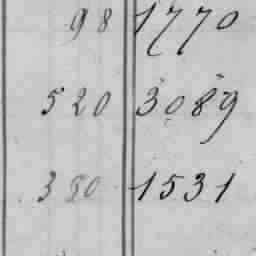 98 1770
520 3089
380 1531